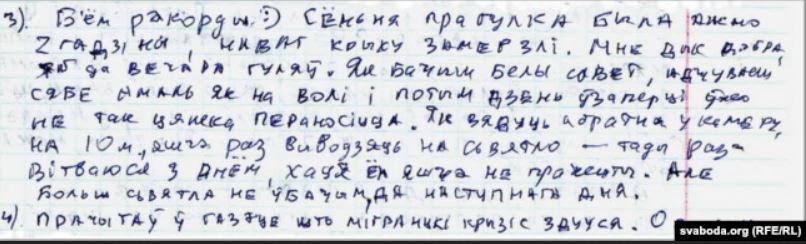 3). Б'ём рэкорды :) Сёньня прагулка была ажно
2 гадзіны, нават крыху змерзлі. Мне дык добра,
да вечара гуляў. Як бачыш белы сьвет, адчуваеш
сябе амаль як на волі і потым дзень ўзаперці ўжо
не так цяжка пераносіцца. Як вядуць абратна ў камеру,
на 10 м, яшчэ раз выводзяць на сьвятло — тады раз
вітваюся з днём, хаця ён яшчэ не пражыты. Але
больш сьвятла не ўбачым, да наступнага дня.
4) Прачытаў ў газэце што мігранцкі крызіс здуўся. О
svaboda.org (RFE/RL)